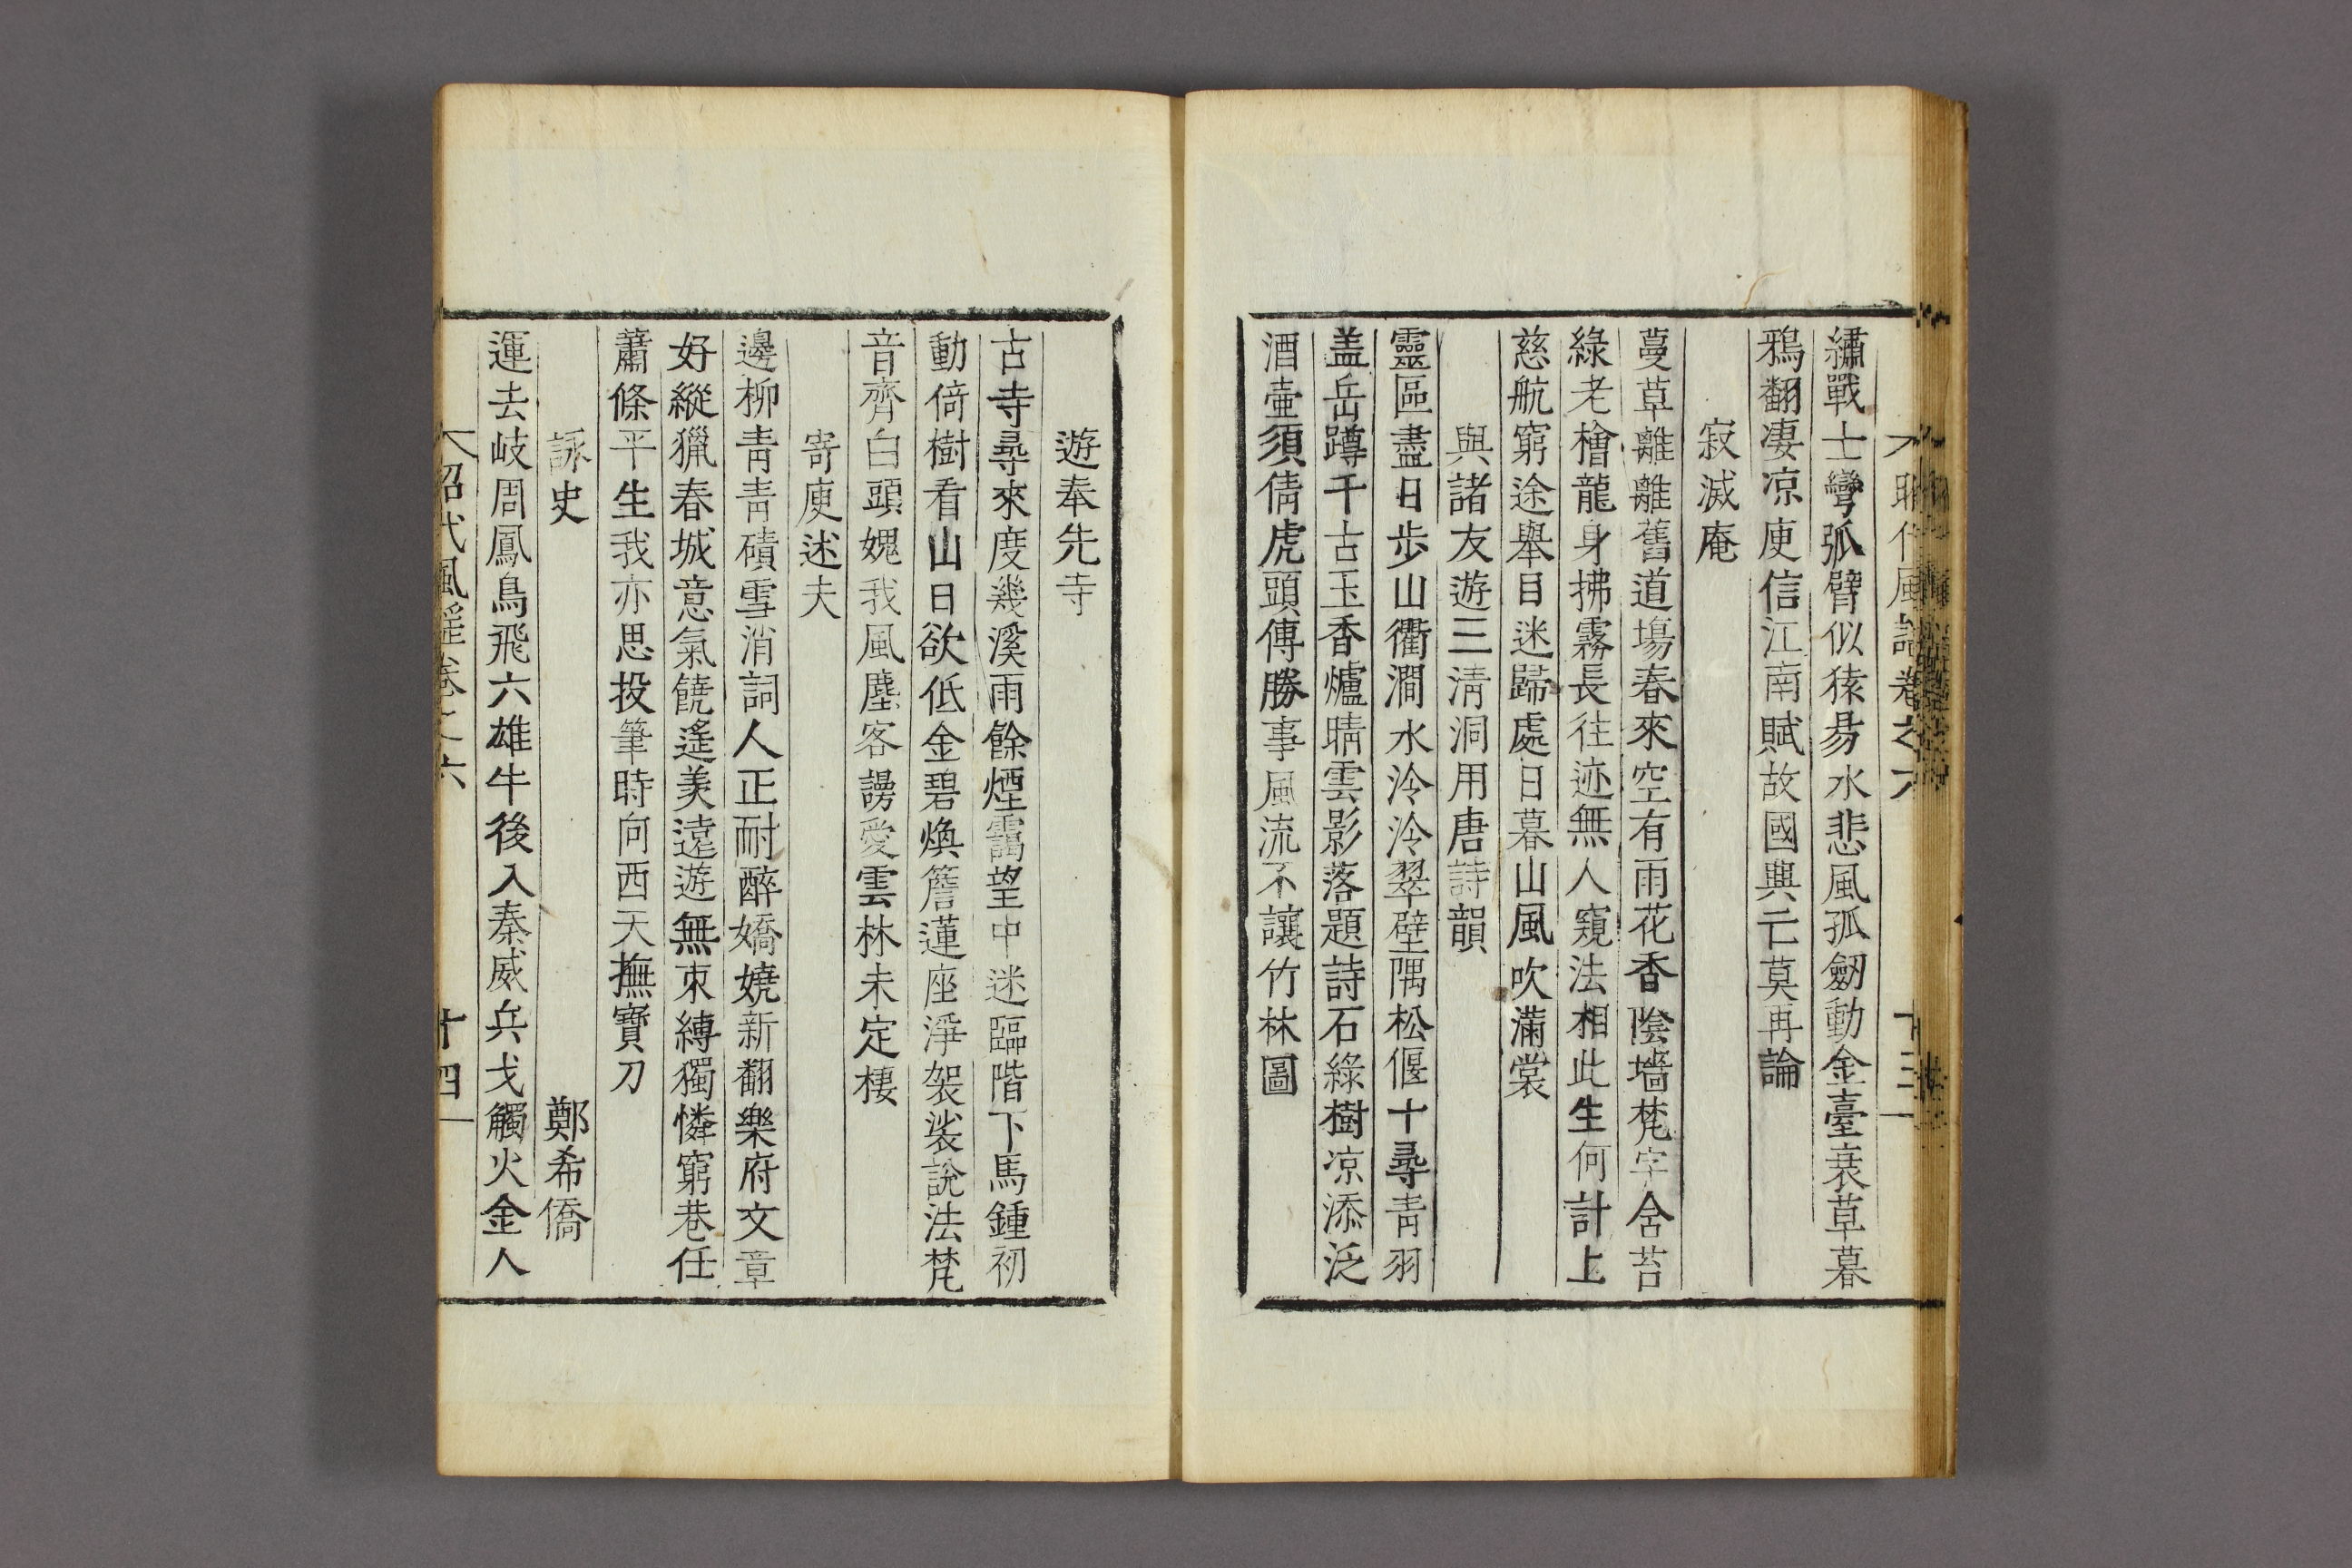 昭代風謠卷之六
十三
繡戰士彎弧臂似猿昜水悲風孤劒動金臺衰草暮
鴉翻凄凉庾信江南賦故國興亡莫再論
寂滅庵
蔓草離離舊道塲春來空有雨花香陰墻梵字含苔
綠老檜龍身拂霧長往迹無人窺法相此生何計上
慈航窮途舉目迷歸處日暮山風吹滿裳
與諸友遊三淸洞用唐詩韻
靈區盡日步山衢澗水泠泠翠壁隅松偃十尋靑羽
盖岳蹲千古玉香爐晴雲影落題詩石綠樹凉添泛
酒壷須倩虎頭傳勝事風流不讓竹林圖
遊奉先寺
古寺尋來度幾溪雨餘煙靄望中迷臨階下馬鍾初
動倚樹看山日欲低金碧煥簷蓮座淨袈裟說法梵
音齊白頭媿我風塵客謾愛雲林未定棲
寄庾述夫
邊柳靑靑磧雪消詞人正耐醉嬌嬈新翻樂府文章
好縱獵春城意氣饒遙羡遠遊無束縛獨憐窮巷任
蕭條平生我亦思投筆時向西天撫寶刀
詠史
鄭希僑
運去岐周鳳鳥飛六雄牛後入秦威兵戈觸火金人
昭代風謠卷之六
十四